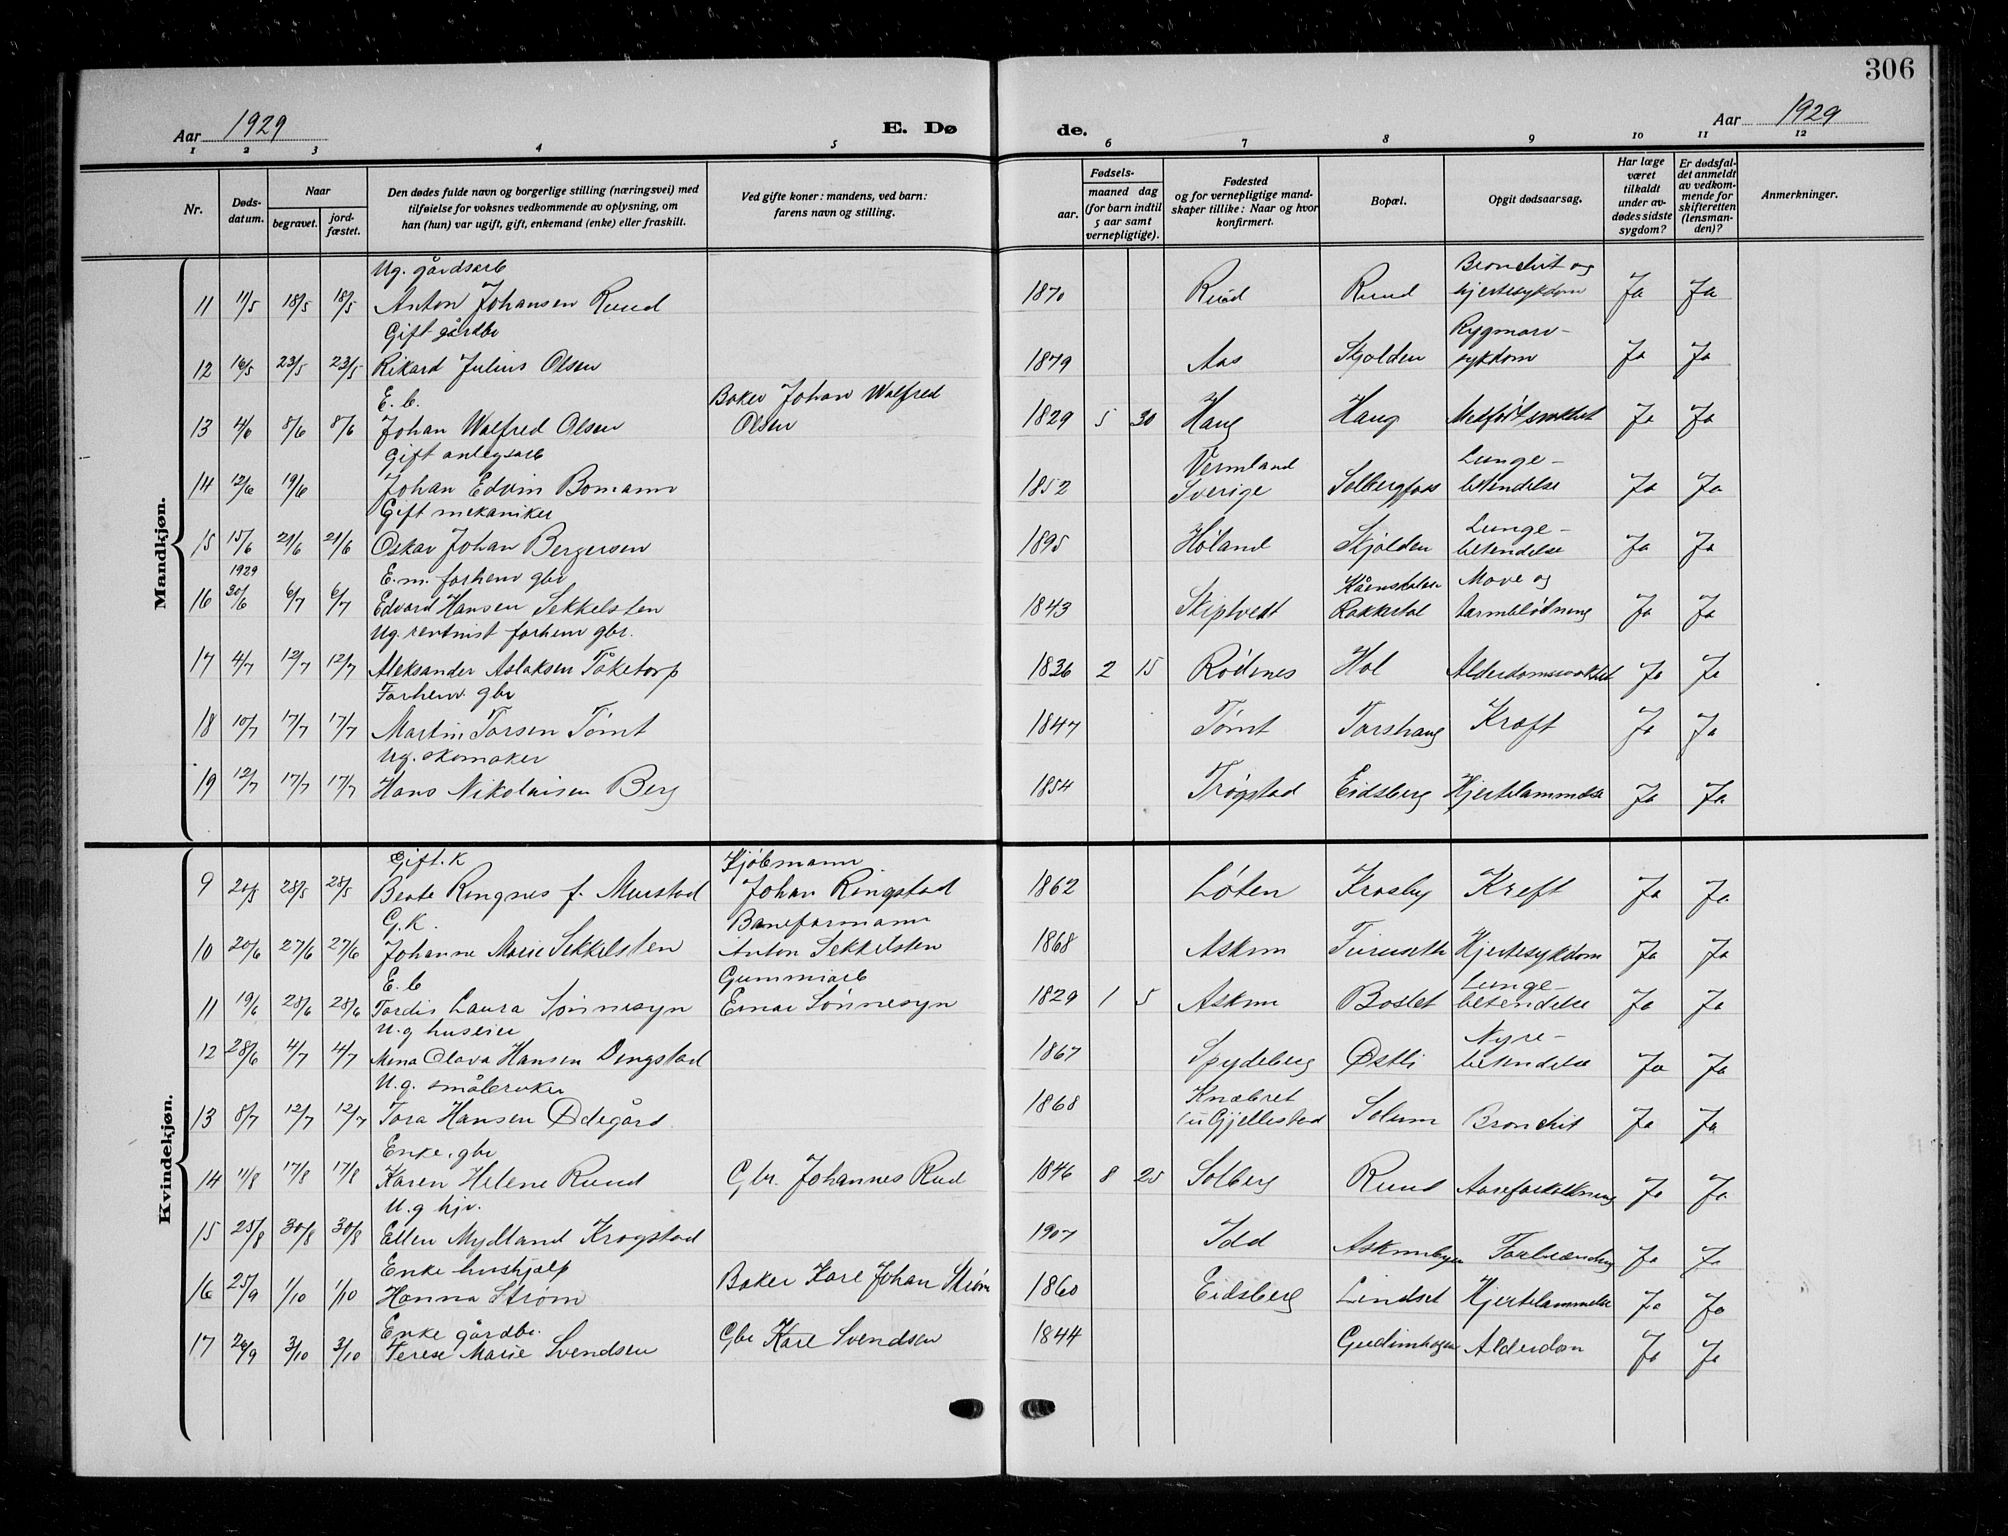 306
Aar 1929 E. Døde. Aar 1929
1 2 3 4 5 6 7 8 9 10 11 12
Nr. | Døds-datum. | Naar begravet. | jord-fæstet. | Den dødes fulde navn og borgerlige stilling (næringsvei) med tilføielse for voksnes vedkommende av oplysning, om han (hun) var ugift, gift, enkemand (enke) eller fraskilt. | Ved gifte koner: mandens, ved barn: farens navn og stilling. | Fødsels-aar. | maaned dag (for barn indtil 5 aar samt vernepligtige). | Fødested og for vernepligtige mandskaper tillike: Naar og hvor konfirmert. | Bopæl. | Opgit dødsaarsag. | Har læge været tilkaldt under avdødes sidste sygdom? | Er dødsfaldet anmeldt av vedkommende for skifteretten (lensmanden)? | Anmerkninger.
Mandkjøn.
Ug. gårdsarb Bronchit og
11 11/5 18/5 18/5 Anton Johansen Ruud 1870 Ruud Ruud hjertesykdom Ja Ja
Gift gårdbr Rygmarv-
12 16/5 23/5 23/5 Rikard Julius Olsen 1879 Aas Skjolden sykdom Ja Ja
E. b. Baker Johan Walfred
13 4/6 8/6 8/6 Johan Walfred Olsen Olsen 1829 5 30 Haug Haug Medfødt svakhet Ja Ja
Gift anlegsarb Vermland Lunge-
14 12/6 19/6 Johan Edvin Bomann 1852 Sverige Solbergfoss betendelse Ja Ja
Gift mekaniker Lunge-
15 15/6 21/6 21/6 Oskar Johan Bergersen 1895 Høland Skjolden betendelse Ja Ja
1929 E.m. forhenv gbr Mave og
16 30/6 6/7 6/7 Edvard Hansen Sekkelsten 1843 Skiptvedt Rakkestad tarmblødning Ja Ja
Ug. rentnist forhenv gbr.
17 4/7 12/7 12/7 Aleksander Aslaksen Tåketorp 1836 2 15 Rødenes Hol Alderdomssvakhet Ja Ja
Forhenv. gbr
18 10/7 17/7 17/7 Martin Torsen Tømt 1847 Tømt Torshaug Kræft Ja Ja
Ug. skomaker
19 12/7 17/7 17/7 Hans Nikolaisen Berg 1854 Trøgstad Eidsberg Hjertelammelse Ja Ja
Kvindekjøn.
Gift. K Kjøbmann
9 20/5 28/5 28/5 Beate Ringnes f. Meustad Johan Ringstad 1862 Løten Krosby Kreft Ja Ja
G. K. Baneformann
10 20/6 27/6 27/6 Johanne Marie Sekkelsten Anton Sekkelsten 1868 Askim Furuseth Hjertesykdom Ja Ja
E. b Gummiarb Lunge-
11 19/6 28/6 28/6 Tordis Laura Sønnesyn Einar Sønnesyn 1829 1 5 Askim Baslet betendelse Ja Ja
U. g huseier Nyre-
12 28/6 4/7 4/7 Mina Olava Hansen Dingstad 1867 Spydeberg Østli betendelse Ja Ja
U. g. småbruker Knæbret
13 8/7 12/7 12/7 Tora Hansen Ødegård 1868 (u Gjellestad Solum Bronchit Ja Ja
Enke. gbr
14 11/8 17/8 17/8 Karen Helene Ruud Gbr. Johannes Rud 1846 8 25 Solberg Ruud Aareforkalkning Ja Ja
U. g hjv.
15 25/8 30/8 30/8 Ellen Mydland Krogstad 1907 Idd Askimbyen Forbrænding Ja Ja
Enke hushjælp
16 25/9 1/10 1/10 Hanna Strøm Baker Karl Johan Strøm 1860 Eidsberg Lindset Hjertelammelse Ja Ja
Enke gårdbr.
17 26/9 3/10 3/10 Terese Marie Svendsen Gbr Karl Svendsen 1844 Gudimhagen Alderdom Ja Ja